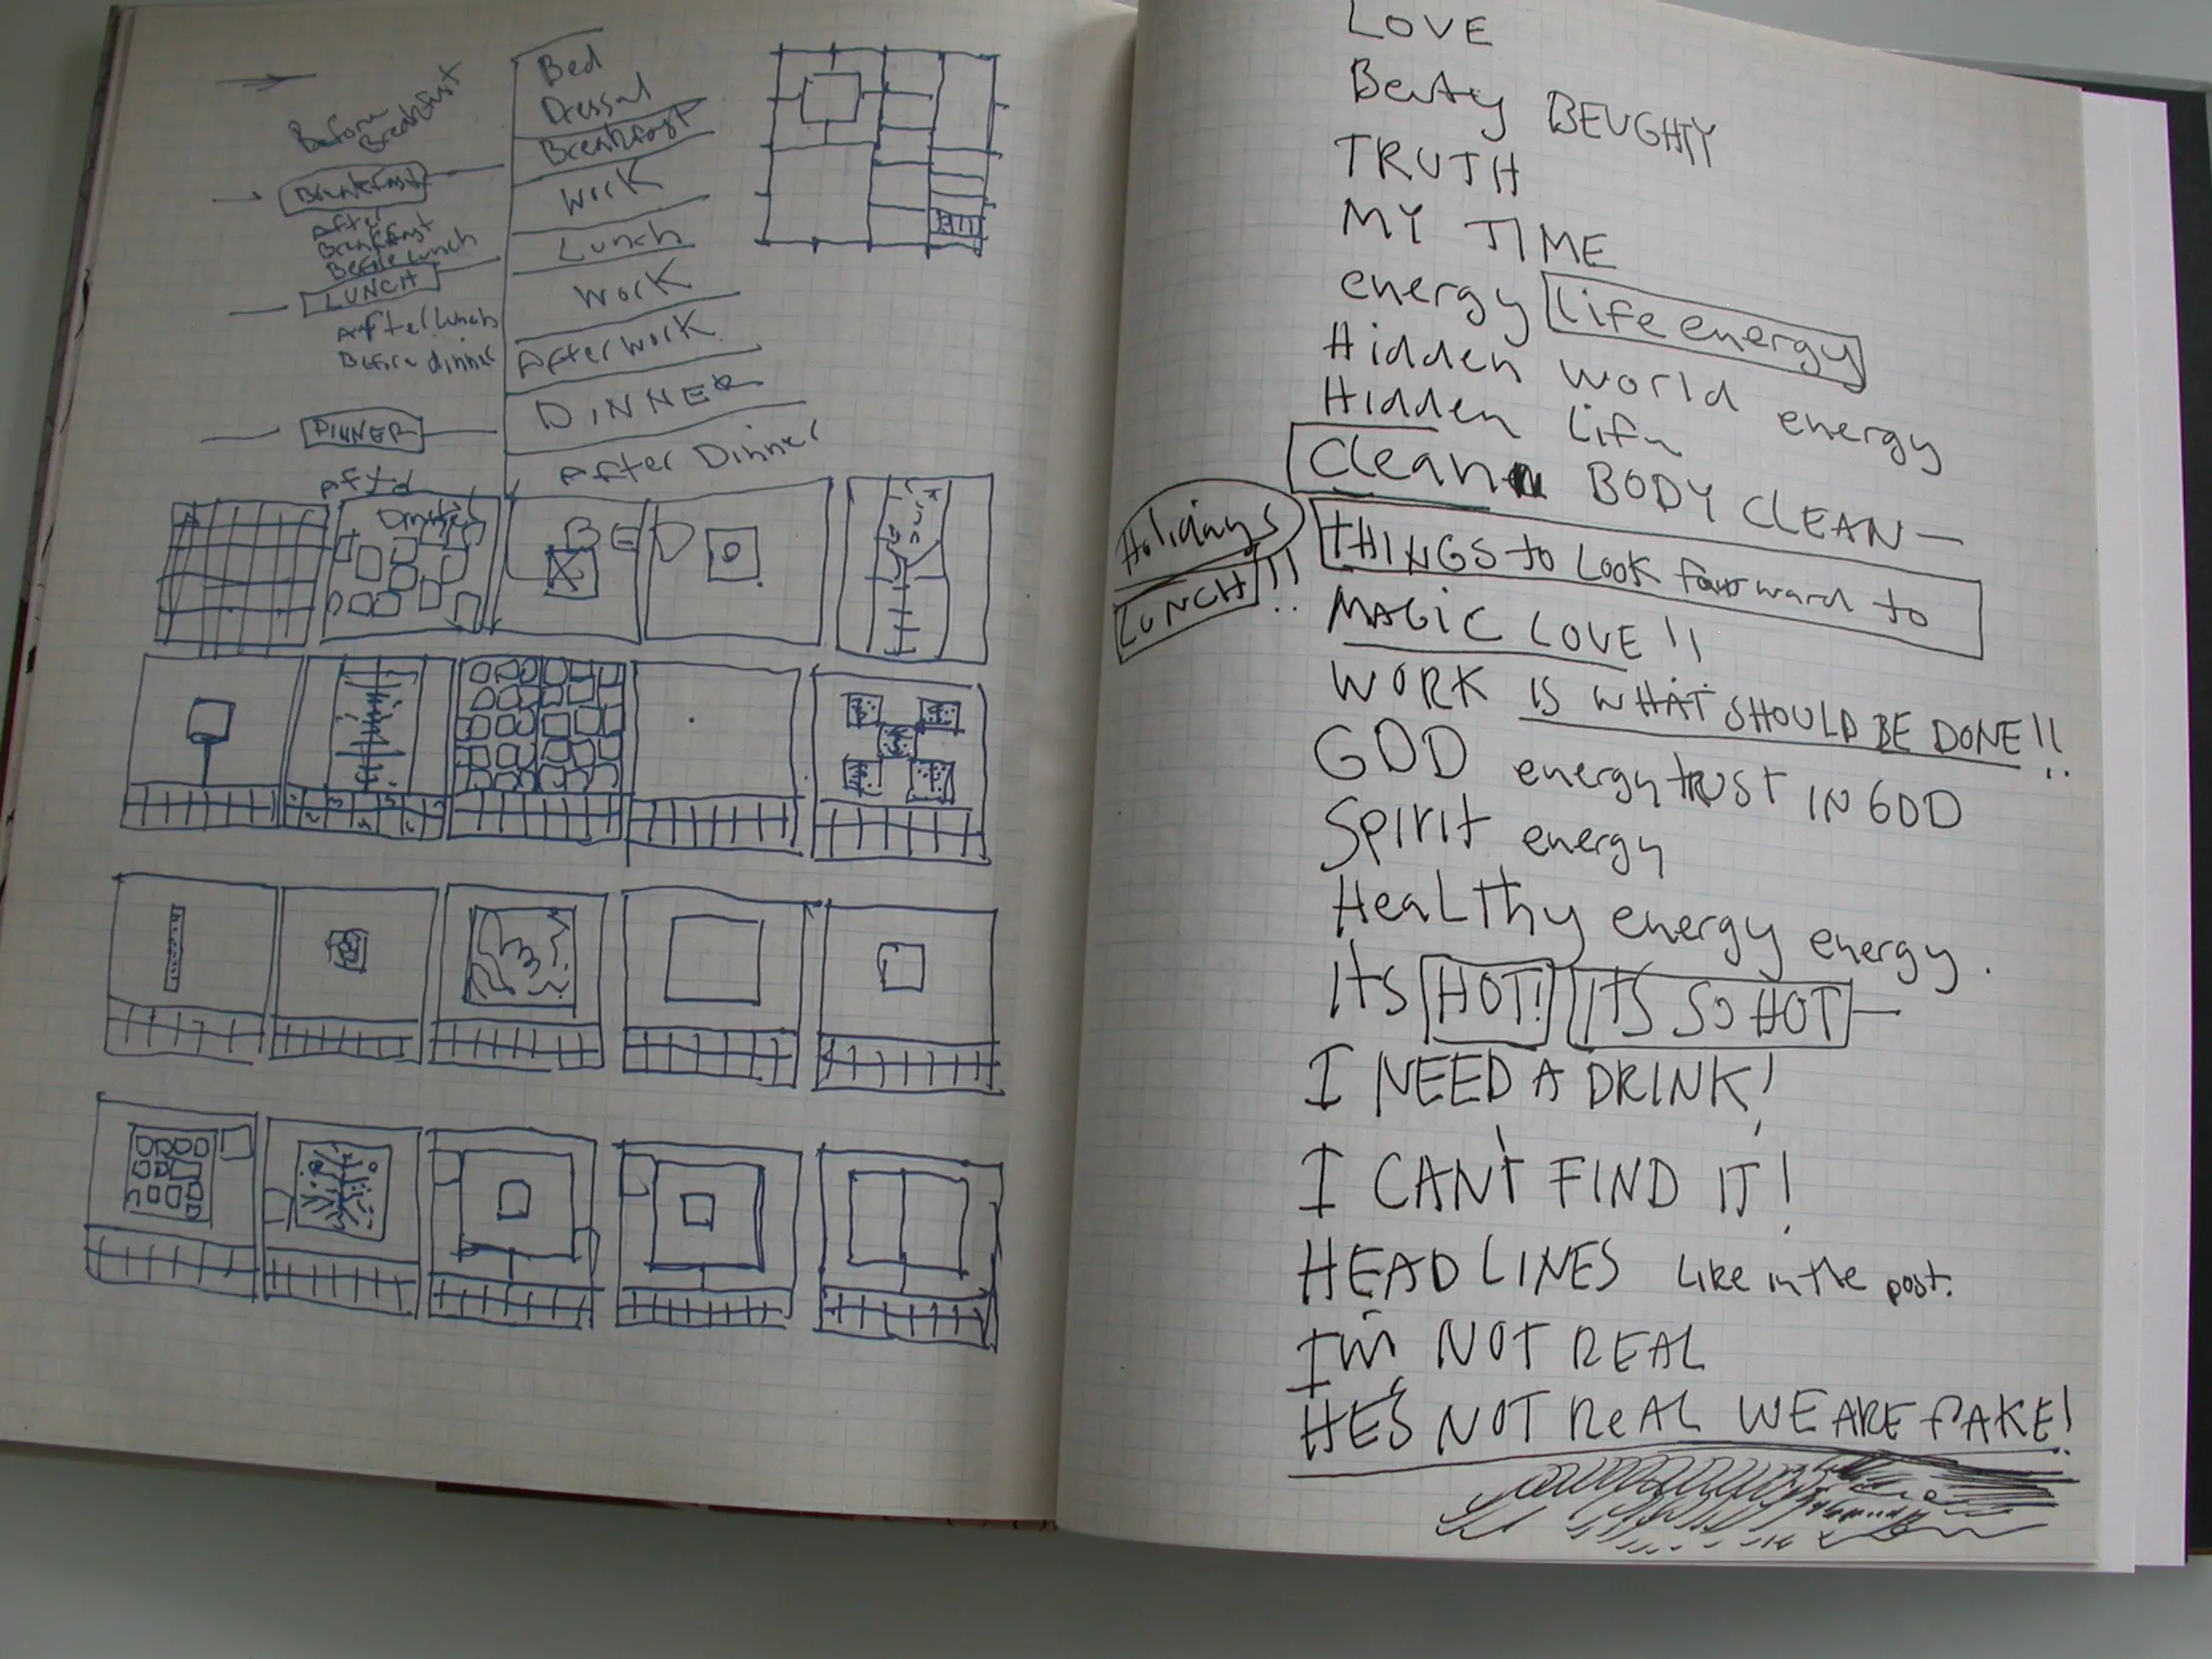 Before
Breakfast
Breakfast
After
Breakfast
Before Lunch
LUNCH
After lunch
Before dinner
DINNER
Aftd
Dinner
Bed
Dressed
Breakfast
Work
Lunch
Work
After work
DINNER
After Dinner
BED
LOVE
Beuty BEUGHTY
TRUTH
MY TIME
energy Life energy
Hidden world energy
Hidden Life
Clean BODY CLEAN —
Holidays
LUNCH!!
THINGS to Look forward to
MAGIC LOVE!!
WORK IS WHAT SHOULD BE DONE!!
GOD energy TRUST IN GOD
Spirit energy
Healthy energy energy.
Its HOT! ITS SO HOT —
I NEED A DRINK!
I CAN'T FIND IT!
HEADLINES Like in the post.
I'm NOT REAL
HE'S NOT ReAL WE ARE FAKE!